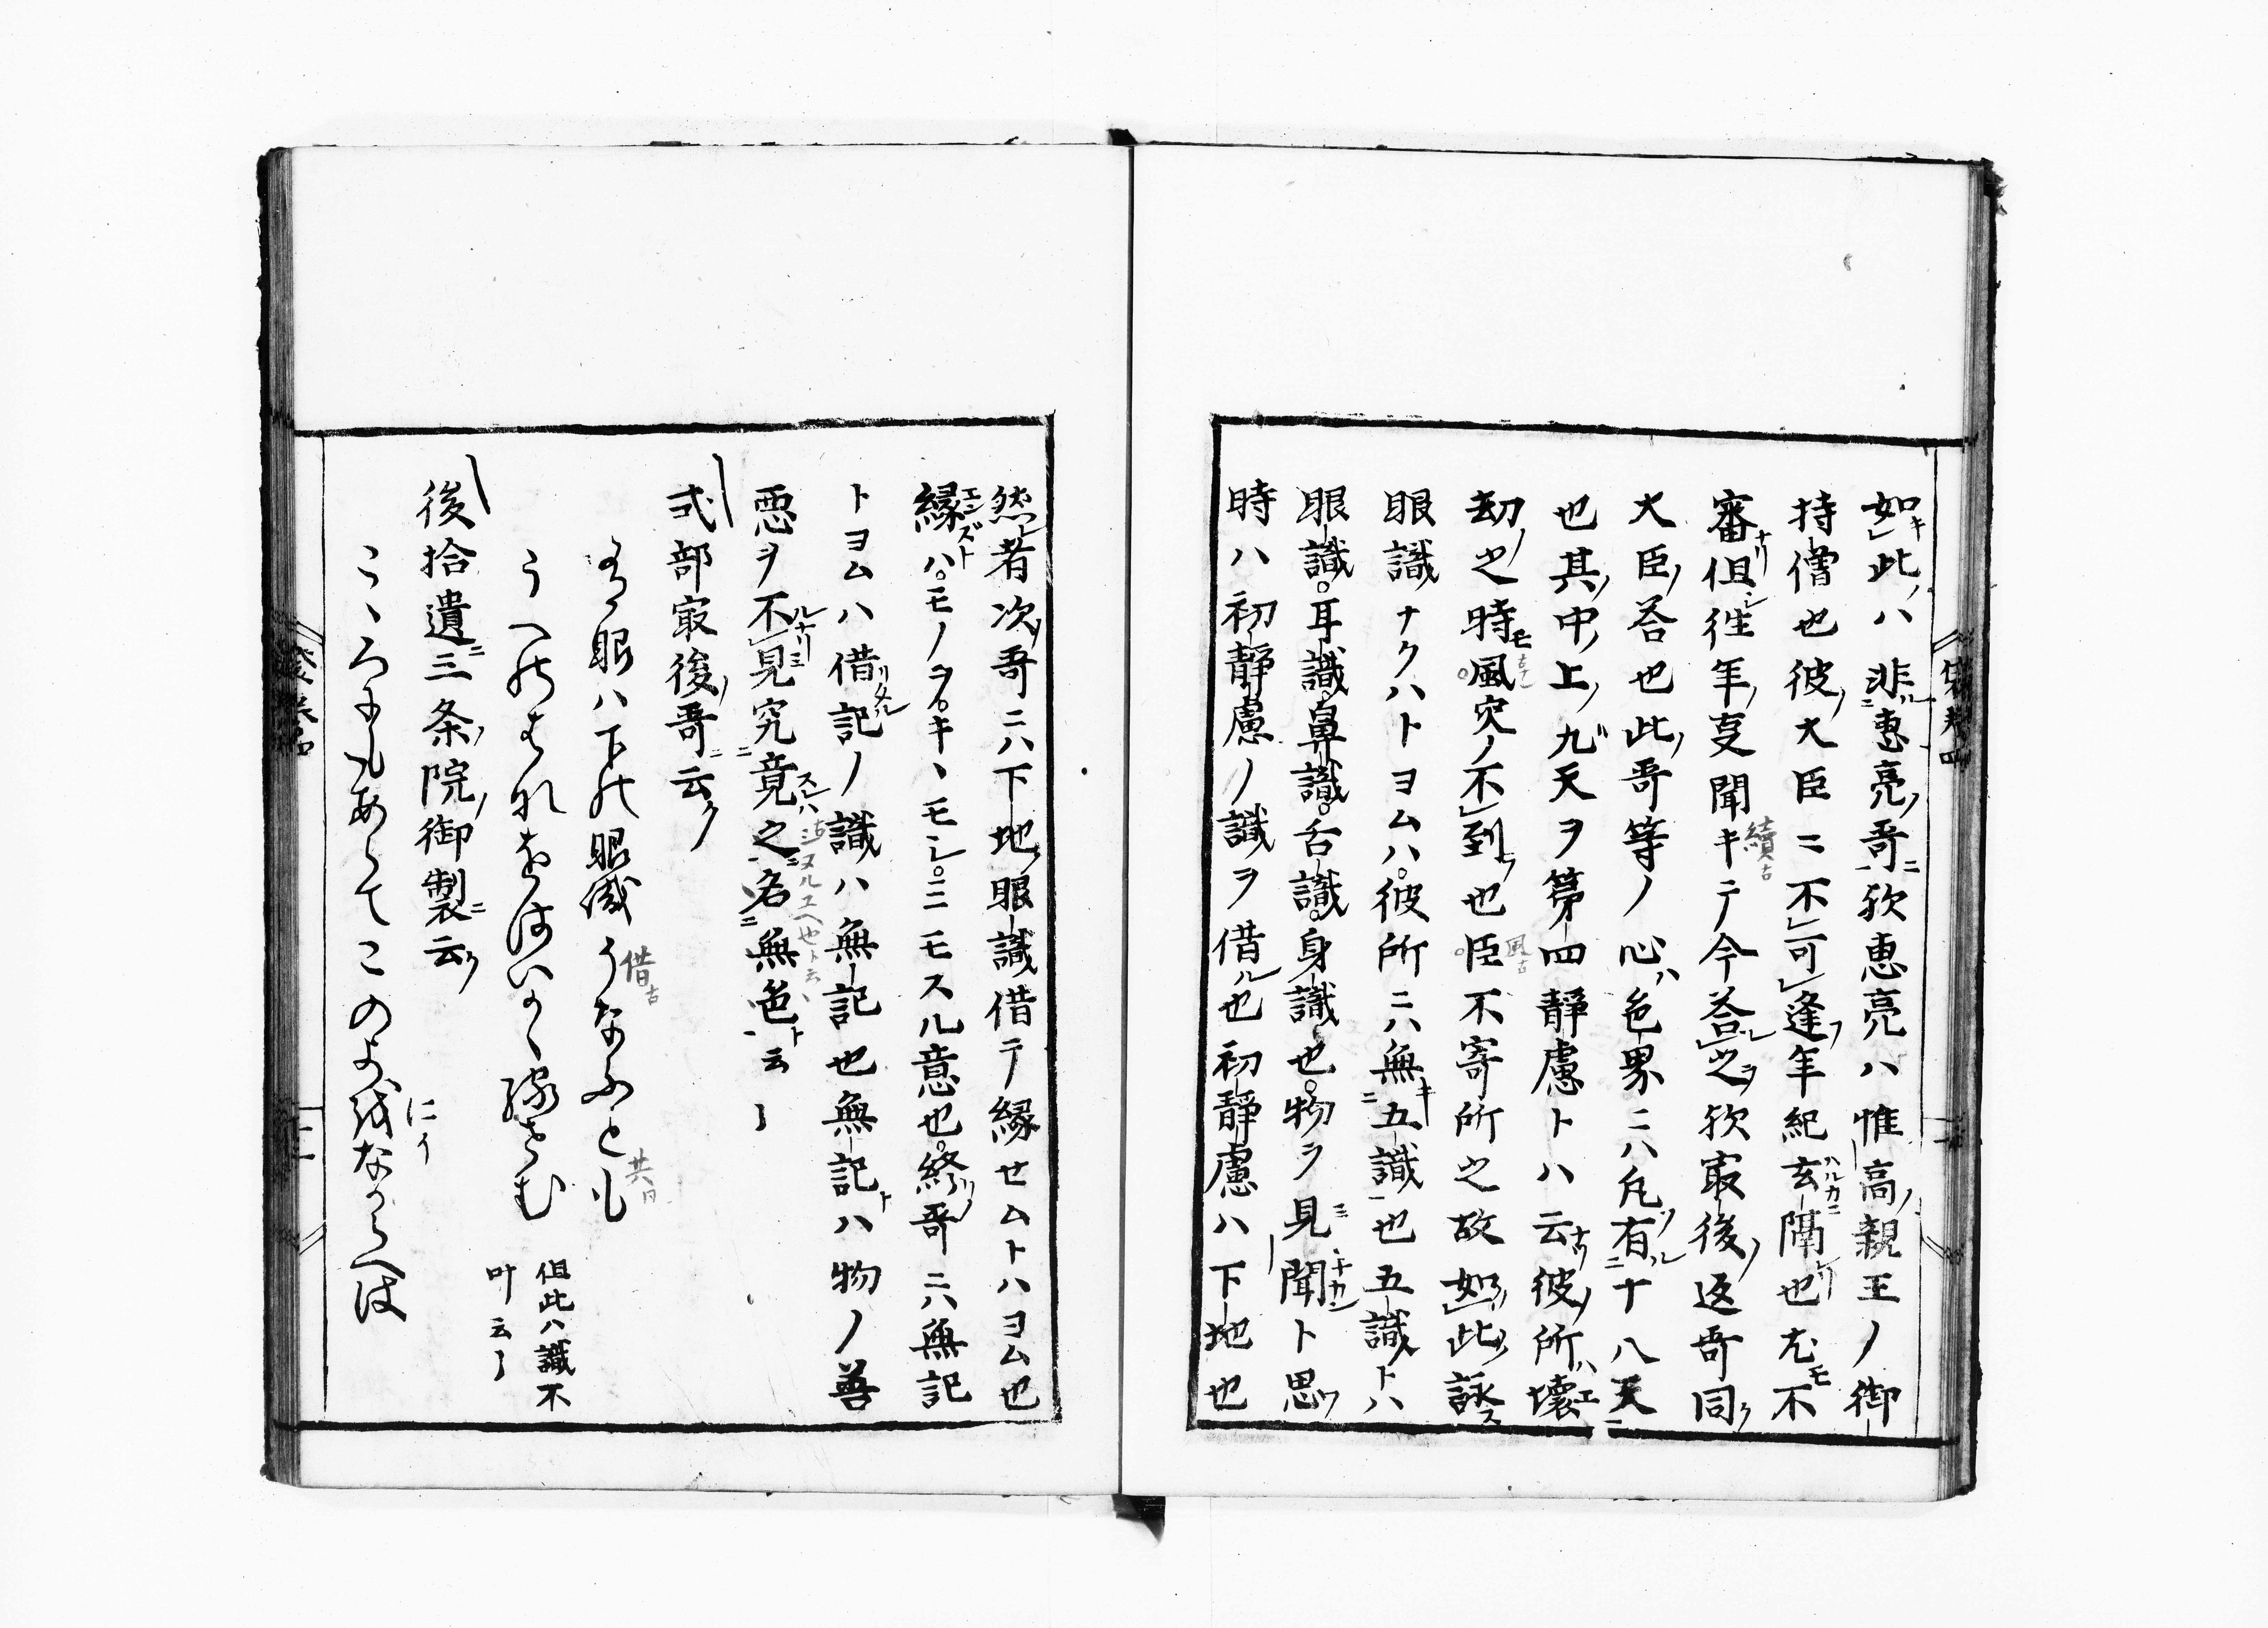 如此ハ非惠亮哥歟惠亮ハ惟高親王ノ御
持僧也彼大臣ニ不可逢年紀玄隔也尤不
審但徃年叓聞キテ今荅之歟㝡後返哥同
大臣荅也此哥等ノ心色界ニハ凢有十八天
也其中上九天ヲ第四静慮トハ云彼所壊
劫之時風灾ノ不到也臣不寄所之故如此詠
眼識ナクハトヨムハ彼所ニハ無五識也五識トハ
眼識耳識鼻識舌識身識也物ヲ見聞ト思
時ハ初静慮ノ識ヲ借也初静慮ハ下地也
然者次哥ニハ下地眼識借テ縁セムトハヨム也
縁ハモノヲキヽモシミモスル意也終哥ニハ無記
トヨムハ借記ノ識ハ無記也無記ハ物ノ善
悪ヲ不見究竟之名無色云々
式部㝡後哥云
眼ハ下の眼識うなふとも
うへのそれをはいかゝ縁せむ
但此ハ識不
叶云々
後拾遺三条院御製云
こゝろにもあらてこのよになからへは